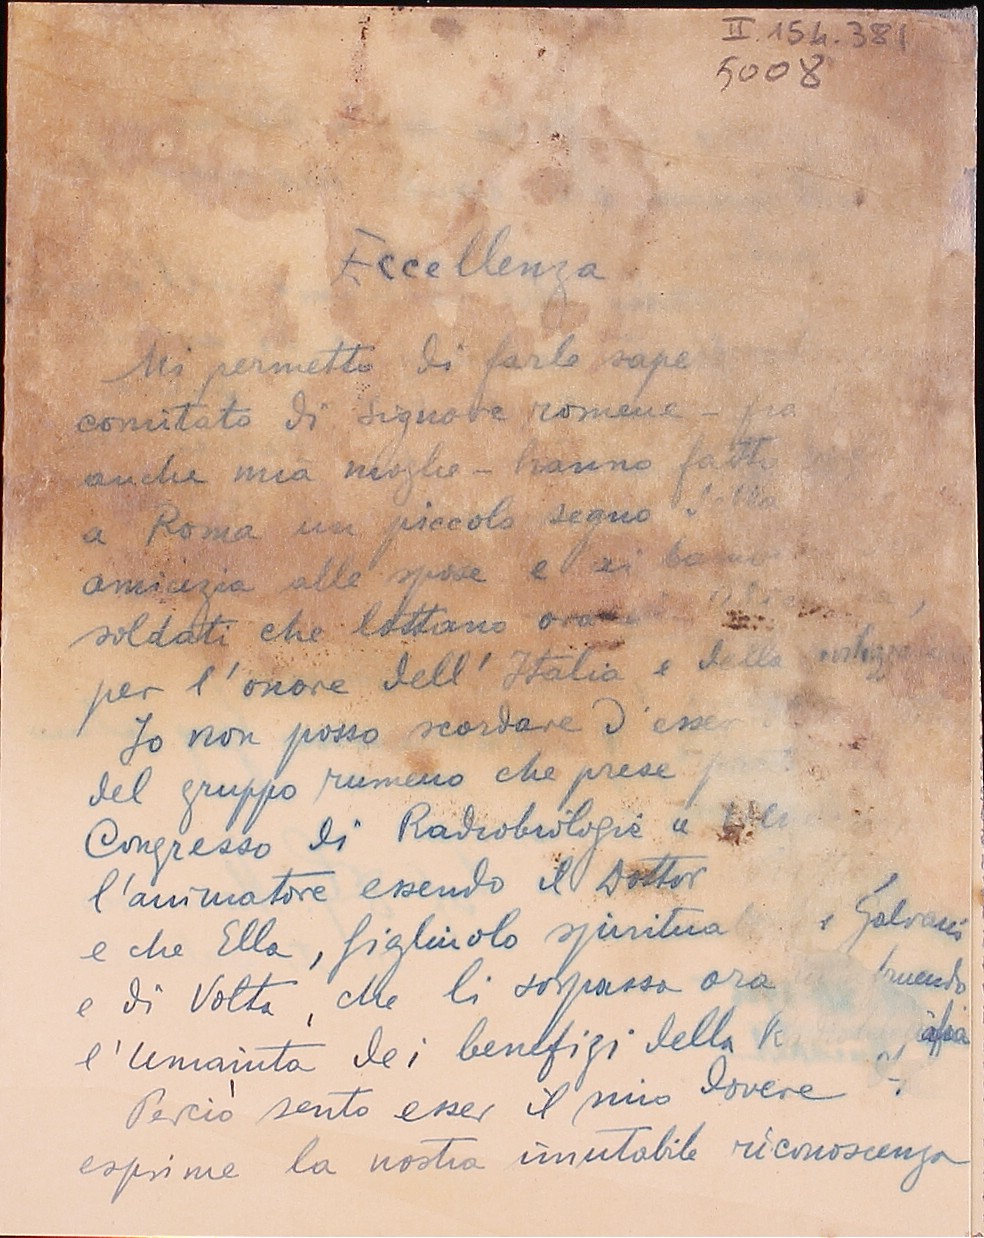 II.154.381
5008
Eccellenza
Mi permetto di farle sape
comitato di signore romene - fra
anche mia moglie - hanno fatto
a Roma un piccolo segno
amicizia alle spose e ai
soldati che lottano ora
per l'onore dell' Italia e della
Io non posso scordare d'esser
del gruppo rumeno che prese
Congresso di Radiobiologie a
l'animatore essendo il Dottor
e che Ella, figliuolo spiritua Galvani
e di Volta, che li sorpassa ora
l'Umainta dei benefizi della R afia
Perciò sento esser il mio dovere d'
esprime la nostra imutabile riconoscenza